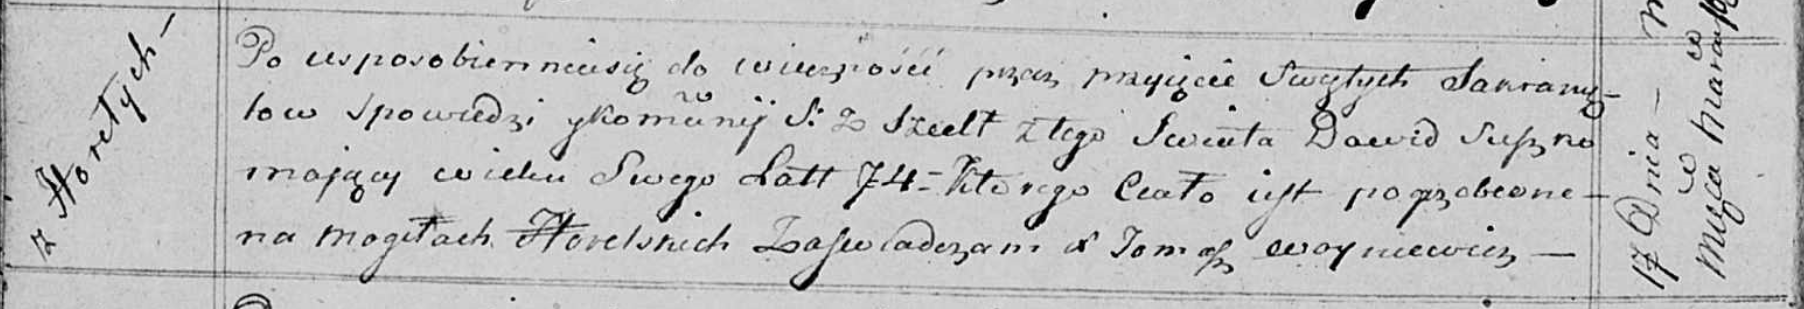 z Horełych —
Po usposobienniusię do wieczności przez przyięcie Swętych Sakramę-
tow Spowiedzi y Komunij S: Z Szedł z tego Swiata Dawid Suszno
mający wieku Swego Latt 74 - Ktorego Ciało iest pogrzebione -
na mogiłach Horelskich Zaswiadczam X Tomasz Woyniewicz —
17 Dnia —